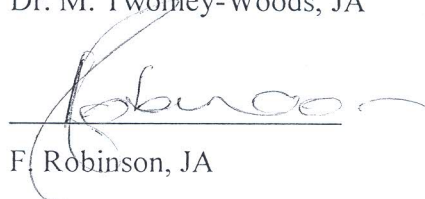 Dr. M. Twomey-Woods, JA
Robinson
F. Robinson, JA